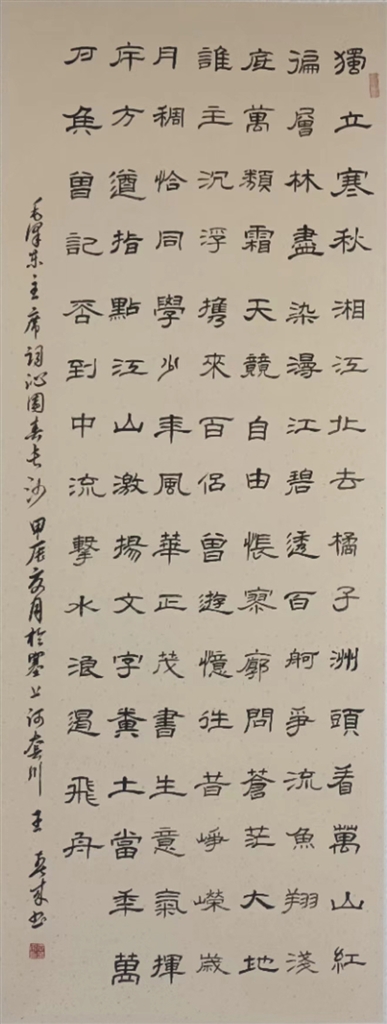 獨立寒秋湘江北去橘子洲頭看萬山紅
徧層林盡染漫江碧透百舸爭流魚翔淺
底萬類霜天競自由悵寥廓問蒼茫大地
誰主沉浮攜來百侶曾遊憶往昔崢嶸歲
月稠恰同學少年風華正茂書生意氣揮
斥方遒指點江山激揚文字糞土當年萬
户侯曾記否到中流擊水浪遏飛舟
毛澤东主席詞沁園春长沙 甲辰夏月於塞上河套川 王 书